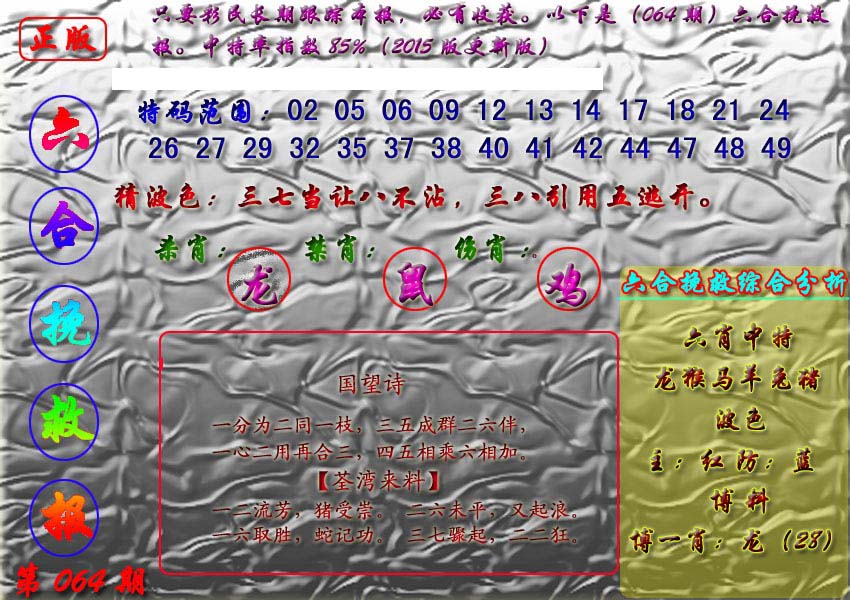 正版
只要彩民长期跟踪本报，必有收获。以下是（064期）六合挽救
报。中特率指数85%（2015版更新版）
六合挽救报
第064期
特码范围：02 05 06 09 12 13 14 17 18 21 24
26 27 29 32 35 37 38 40 41 42 44 47 48 49
猜波色：三七当让八不沾，三八引用五逃开。
杀肖：龙 禁肖：鼠 伤肖：鸡
国望诗
一分为二同一枝，三五成群二六伴，
一心二用再合三，四五相乘六相加。
【荃湾来料】
一二流芳，猪受崇。 二六未平，又起浪。
一六取胜，蛇记功。 三七骤起，二二狂。
六合挽救综合分析
六肖中特
龙猴马羊兔猪
波色
主：红防：蓝
博料
博一肖：龙（28）